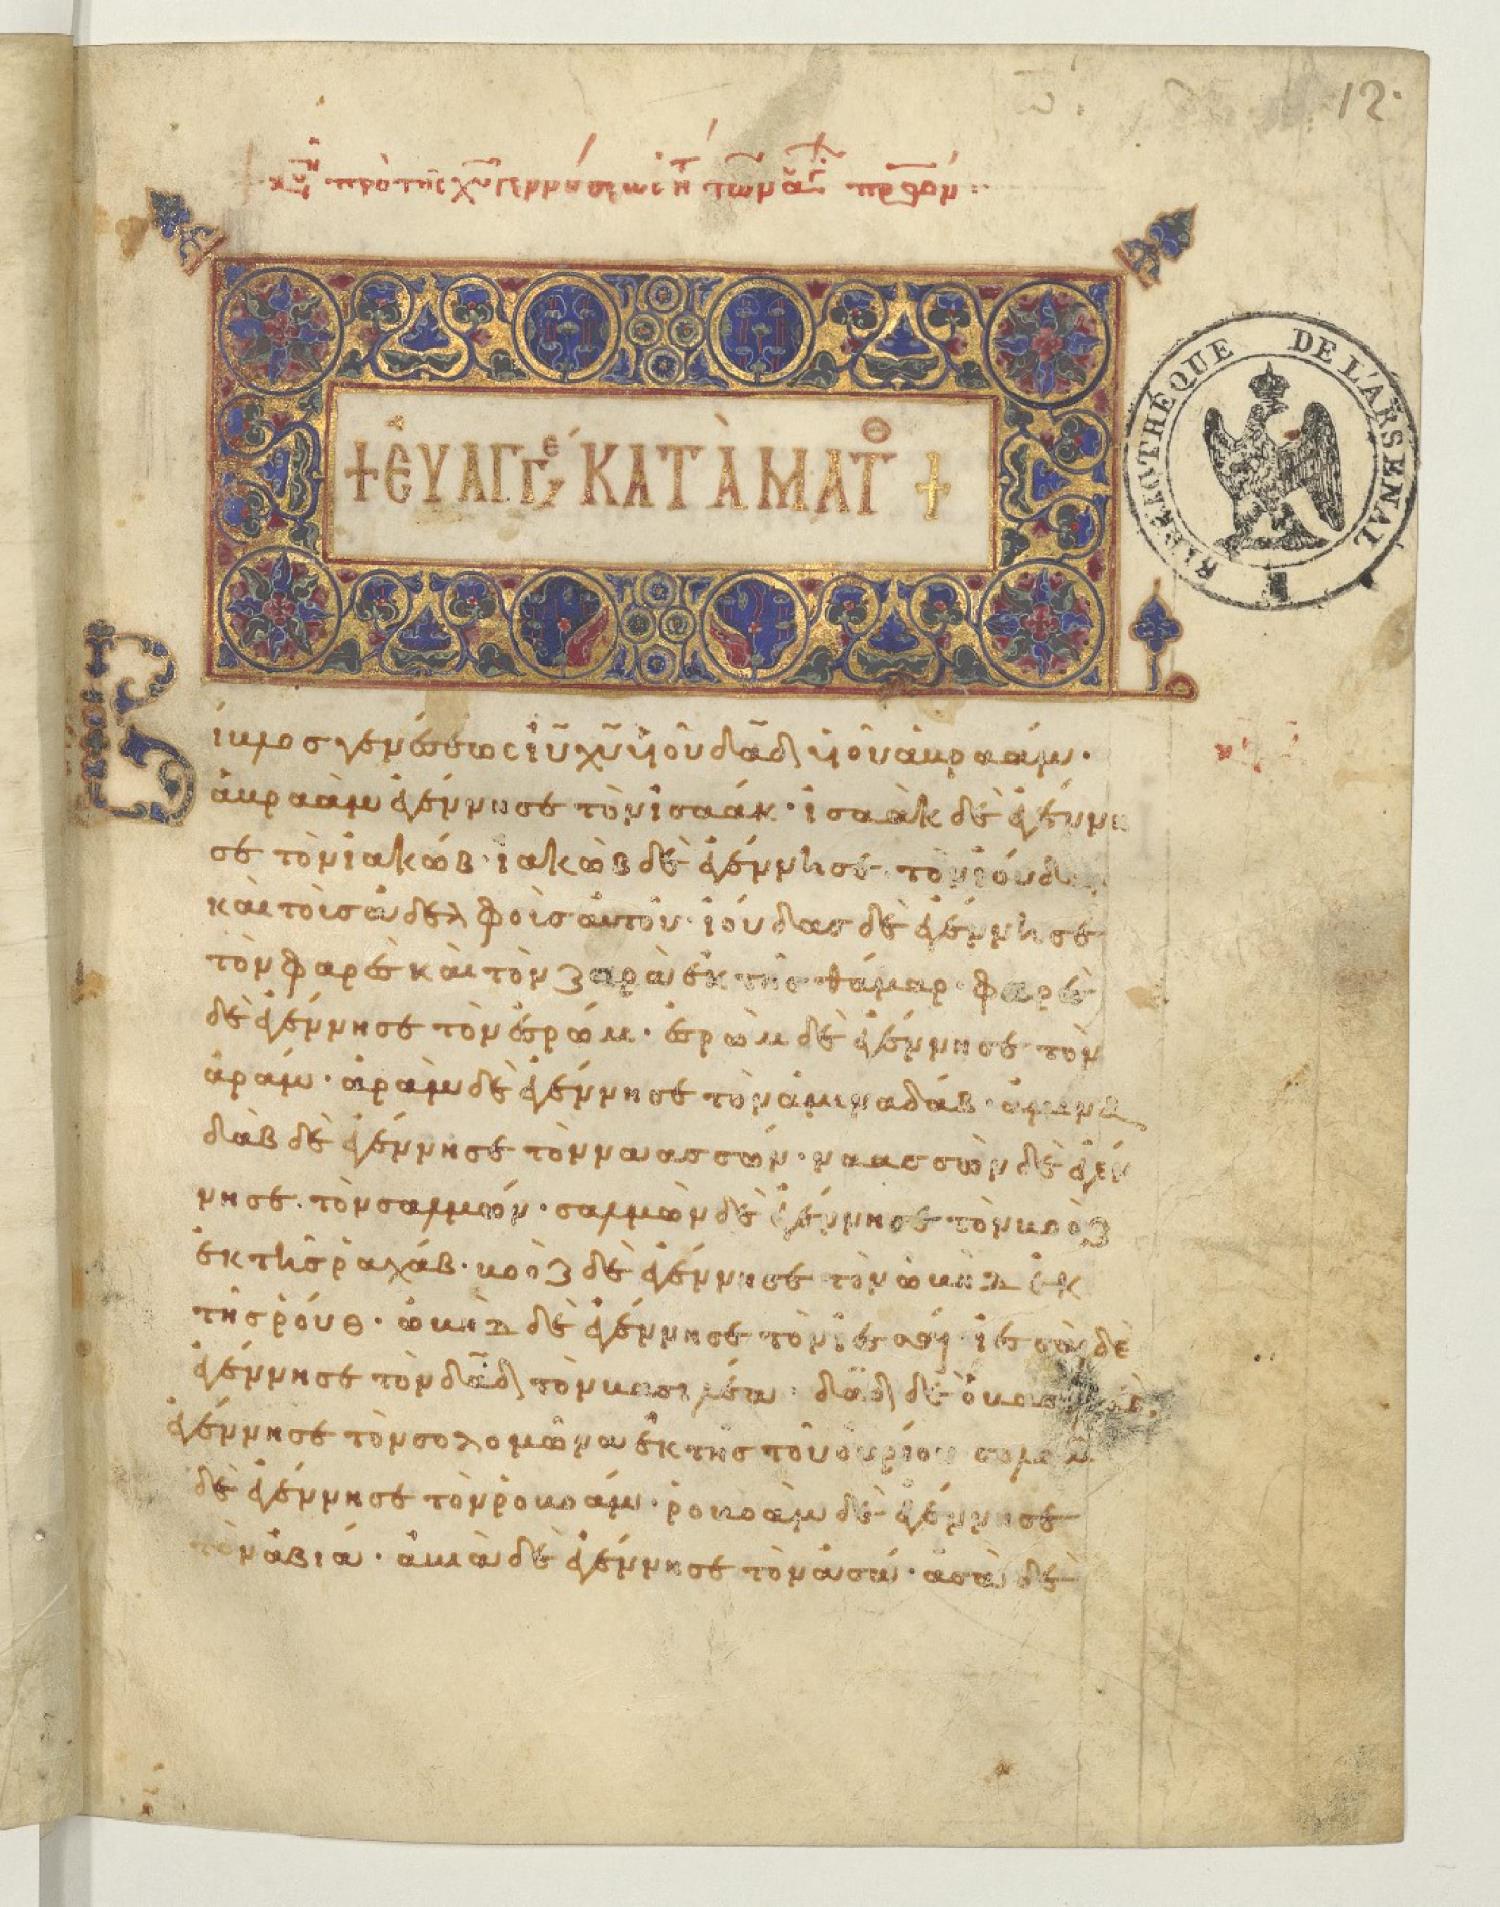 12.
κυ πρὸ τῆς χῦ γεννήσεως ἤτ τῶν ἁγ πρων
+ ἘΥΑΓΓε ΚΑΤᾺ ΜΑΤΘ +
BIBLIOTHÈQUE DE L'ARSENAL
Βίβλος γενέσεως ἰῦ χῦ ὑοῦ δᾱδ ὑοῦ ἀβραάμ·
ἀβραὰμ ἐγέννησε τὸν ἰσαάκ· ἰσαὰκ δὲ ἐγέννη
σε τὸν ἰακώβ· ἰακὼβ δὲ ἐγέννησε τὸν ἰούδαν
καὶ τοὶς ἀδελφοὶς αὐτοῦ· ἰούδας δὲ ἐγέννησε
τὸν φαρὲς καὶ τὸν ζαρὰ ἐκ τῆς θάμαρ· φαρὲς
δὲ ἐγέννησε τὸν ἐσρώμ· ἐσρὼμ δὲ ἐγέννησε τὸν
ἀράμ· ἀρὰμ δὲ ἐγέννησε τὸν ἀμιναδάβ· ἀμινα
δὰβ δὲ ἐγέννησε τὸν ναασσών· ναασσὼν δὲ ἐγέν
νησε τὸν σαλμών· σαλμὼν δὲ ἐγέννησε τὸν βοὸζ
ἐκ τῆς ῥαχάβ· βοὸζ δὲ ἐγέννησε τὸν ὠβὴδ ἐκ
τῆς ῥούθ· ὠβὴδ δὲ ἐγέννησε τὸν ἰεσσαί· ἰεσσαὶ δὲ
ἐγέννησε τὸν δᾱδ τὸν βασιλέα· δᾱδ δὲ ὁ βασιλεὺς
ἐγέννησε τὸν σολομῶνα ἐκ τῆς τοῦ οὐρίου σολομῶ
δὲ ἐγέννησε τὸν ῥοβοάμ· ῥοβοὰμ δὲ ἐγέννησε
τὸν ἀβιά· ἀβιὰ δὲ ἐγέννησε τὸν ἀσά· ἀσὰ δὲ